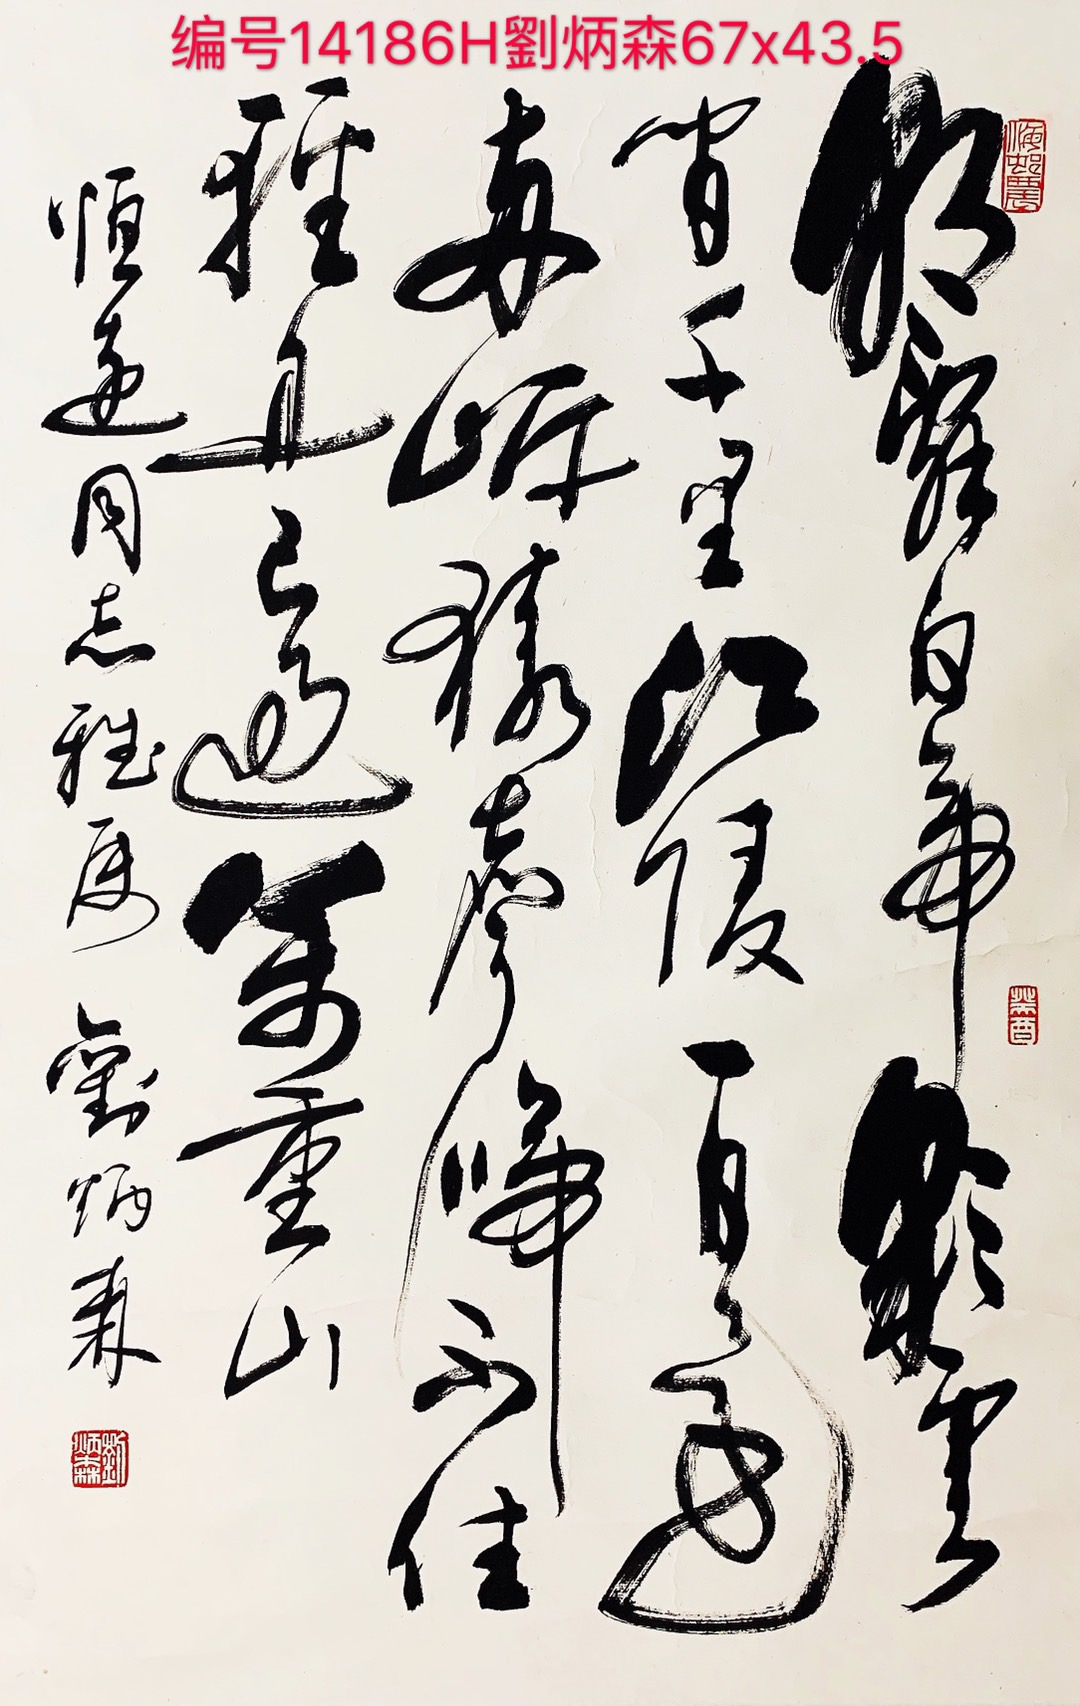 编号14186H劉炳森67x43.5
朝辭白帝彩雲
間千里江陵一日還
兩岸猿聲啼不住
輕舟已過萬重山
恒遠同志雅属 劉炳森
癸酉
劉炳森